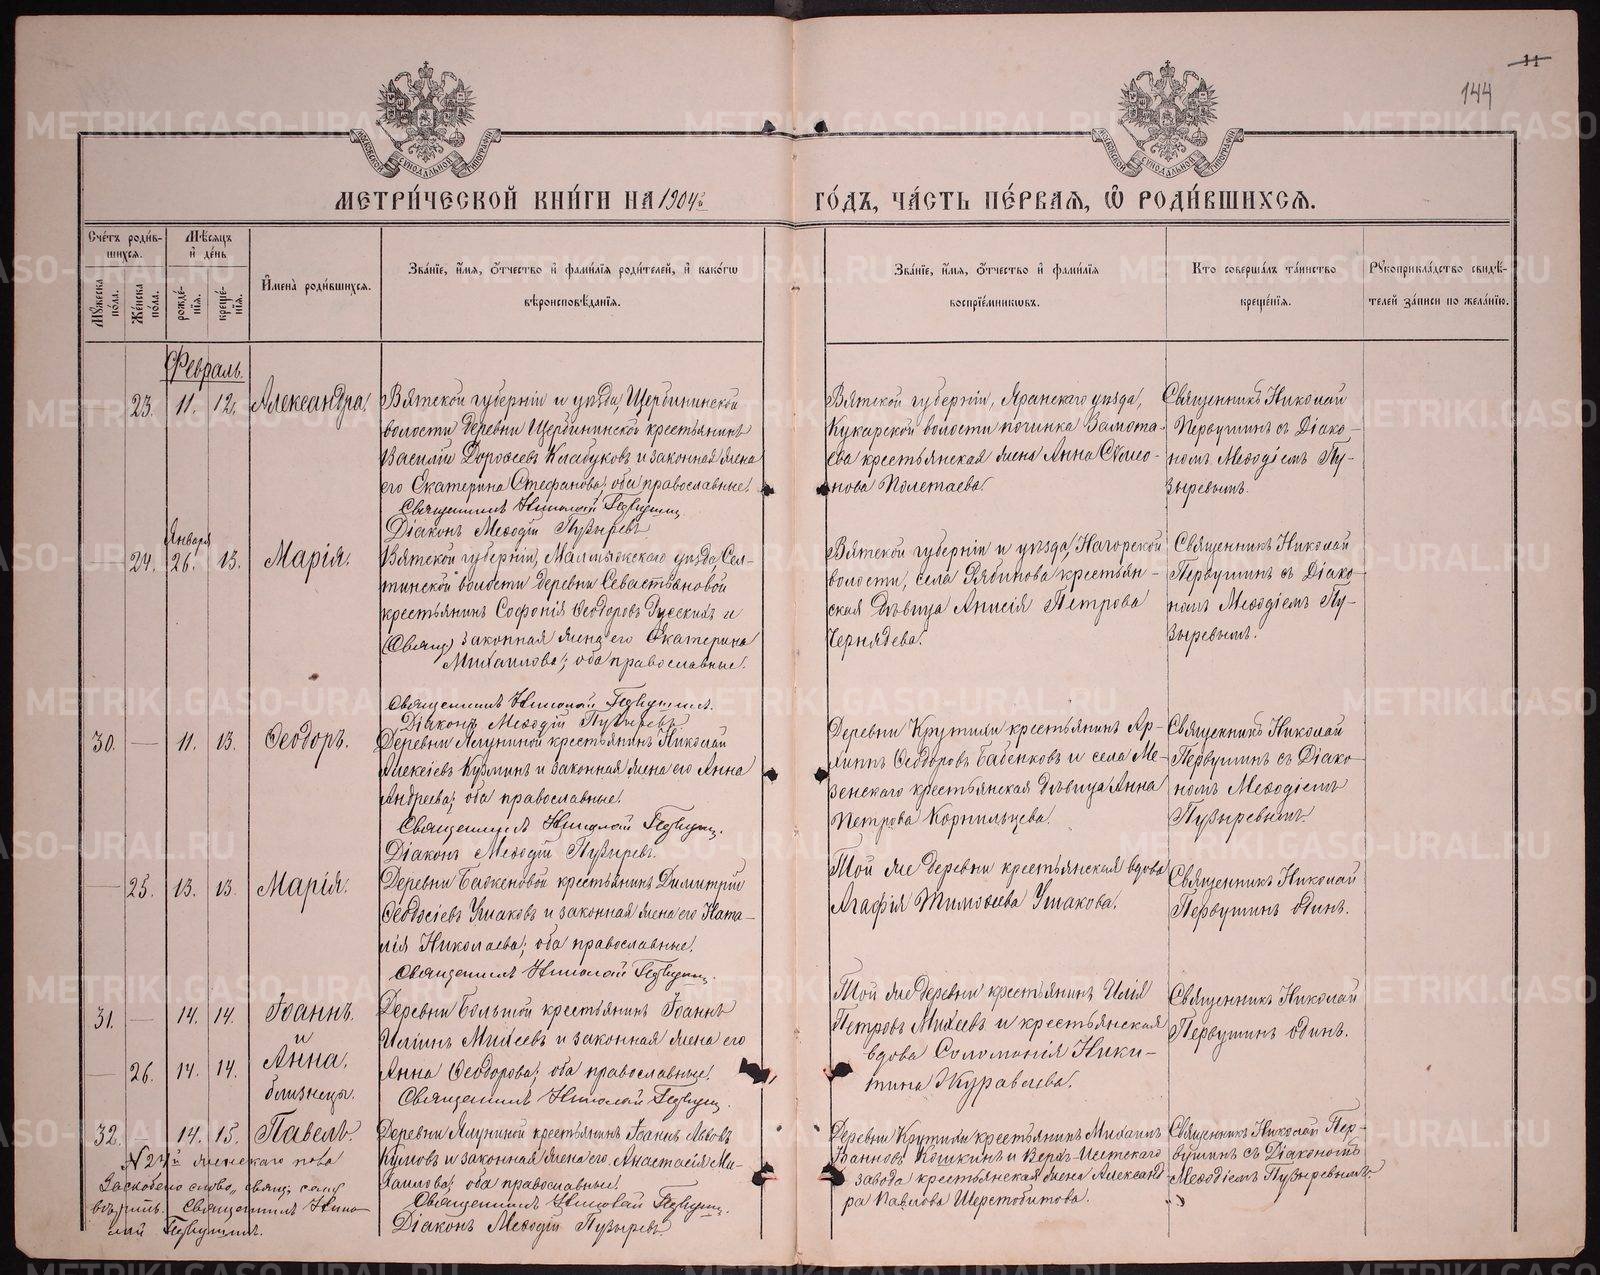 11
144
МОСКОВСКОЙ СѴНОДАЛЬНОЙ ТИПОГРАФІИ
МОСКОВСКОЙ СѴНОДАЛЬНОЙ ТИПОГРАФІИ
МЕТРИ́ЧЕСКОЙ КНИ́ГИ НА 1904й
ГО́ДЪ, ЧА́СТЬ ПЕ́РВАѦ, Ѡ҆ РОДИ́ВШИХСѦ.
Сче́тъ роди́в-
шихсѧ.
Мꙋ́жеска по́ла.
Же́нска по́ла.
Мѣ́сѧцъ
и҆ де́нь
рожде́-
нїѧ.
креще́-
нїѧ.
И҆мена̀ роди́вшихсѧ.
Зва́нїе, и҆́мѧ, ѻ҆́тчество и҆ фами́лїѧ роди́телей, и҆ како́гѡ
вѣроисповѣ́данїѧ.
Зва́нїе, и҆́мѧ, ѻ҆́тчество и҆ фами́лїѧ
воспрїе́мникѡвъ.
Кто соверша́лъ та́инство
креще́нїѧ.
Рꙋкоприкла́дство свидѣ́-
телей за́писи по жела́нїю.
Февраль.
23. 11. 12. Александра.
Вятской губерніи и уѣзда, Щербининской
волости деревни Щербининской крестьянинъ
Василій Дороѳеевъ Кладуковъ и законная жена
его Екатерина Стефанова; оба православные.
Священникъ Николай Первушинъ
Діаконъ Меѳодій Пузыревъ
Вятской губерніи, Яранскаго уѣзда,
Кукарской волости починка Замота-
ева крестьянская жена Анна Симео-
нова Полетаева.
Священникъ Николай
Первушинъ съ Діако-
номъ Меѳодіемъ Пу-
зыревымъ.
Января
24. 26. 13. Марія.
Вятской губерніи, Малмыжскаго уѣзда, Сел-
тинской волости деревни Севастьяновой
крестьянинъ Софонія Ѳеодоровъ Русскихъ и
(Свящ) законная жена его Екатерина
Михаилова; оба православные.
Священникъ Николай Первушинъ.
Діаконъ Меѳодій Пузыревъ
Вятской губерніи и уѣзда, Нагорской
волости, села Рябинова крестьян-
ская дѣвица Анисія Петрова
Чернядева.
Священникъ Николай
Первушинъ съ Діако-
номъ Меѳодіемъ Пу-
зыревымъ.
30. — 11. 13. Ѳеодоръ.
Деревни Ялуниной крестьянинъ Николай
Алексіевъ Кузминъ и законная жена его Анна
Андреева; оба православные.
Священникъ Николай Первушинъ.
Діаконъ Меѳодій Пузыревъ.
Деревни Крутихи крестьянинъ Ар-
хиппъ Ѳеодоровъ Бабенковъ и села Ме-
зенскаго крестьянская дѣвица Анна
Петрова Корнильцева.
Священникъ Николай
Первушинъ съ Діако-
номъ Меѳодіемъ
Пузыревымъ.
— 25. 13. 13. Марія.
Деревни Баженовой крестьянинъ Димитрій
Ѳеодосіевъ Ушаковъ и законная жена его Ната-
лія Николаева; оба православные.
Священникъ Николай Первушинъ.
Той же деревни крестьянская вдова
Агафія Тимоѳеева Ушакова.
Священникъ Николай
Первушинъ одинъ.
31. — 14. 14. Іоаннъ.
и
— 26. 14. 14. Анна,
близнецы.
Деревни Большой крестьянинъ Іоаннъ
Иліинъ Михеевъ и законная жена его
Анна Ѳеодорова; оба православные.
Священникъ Николай Первушинъ.
Той же деревни крестьянинъ Илія
Петровъ Михеевъ и крестьянская
вдова Соломонія Ники-
тина Журавлева.
Священникъ Николай
Первушинъ одинъ.
32. — 14. 15. Павелъ.
Деревни Ялуниной крестьянинъ Іоаннъ Львовъ
Кумовъ и законная жена его Анастасія Ми-
хаилова; оба православные.
Священникъ Николай Первушинъ.
Діаконъ Меѳодій Пузыревъ.
Деревни Крутихи крестьянинъ Михаилъ
Іоанновъ Кошкинъ и Верхъ-Исетскаго
завода крестьянская жена Александ-
ра Павлова Шерстобитова.
Священникъ Николай Пер-
вушинъ съ Діакономъ
Меѳодіемъ Пузыревымъ.
№ 24й женскаго пола
Заскоблено слово „свящ;
Священникъ Нико-
лай Первушинъ.